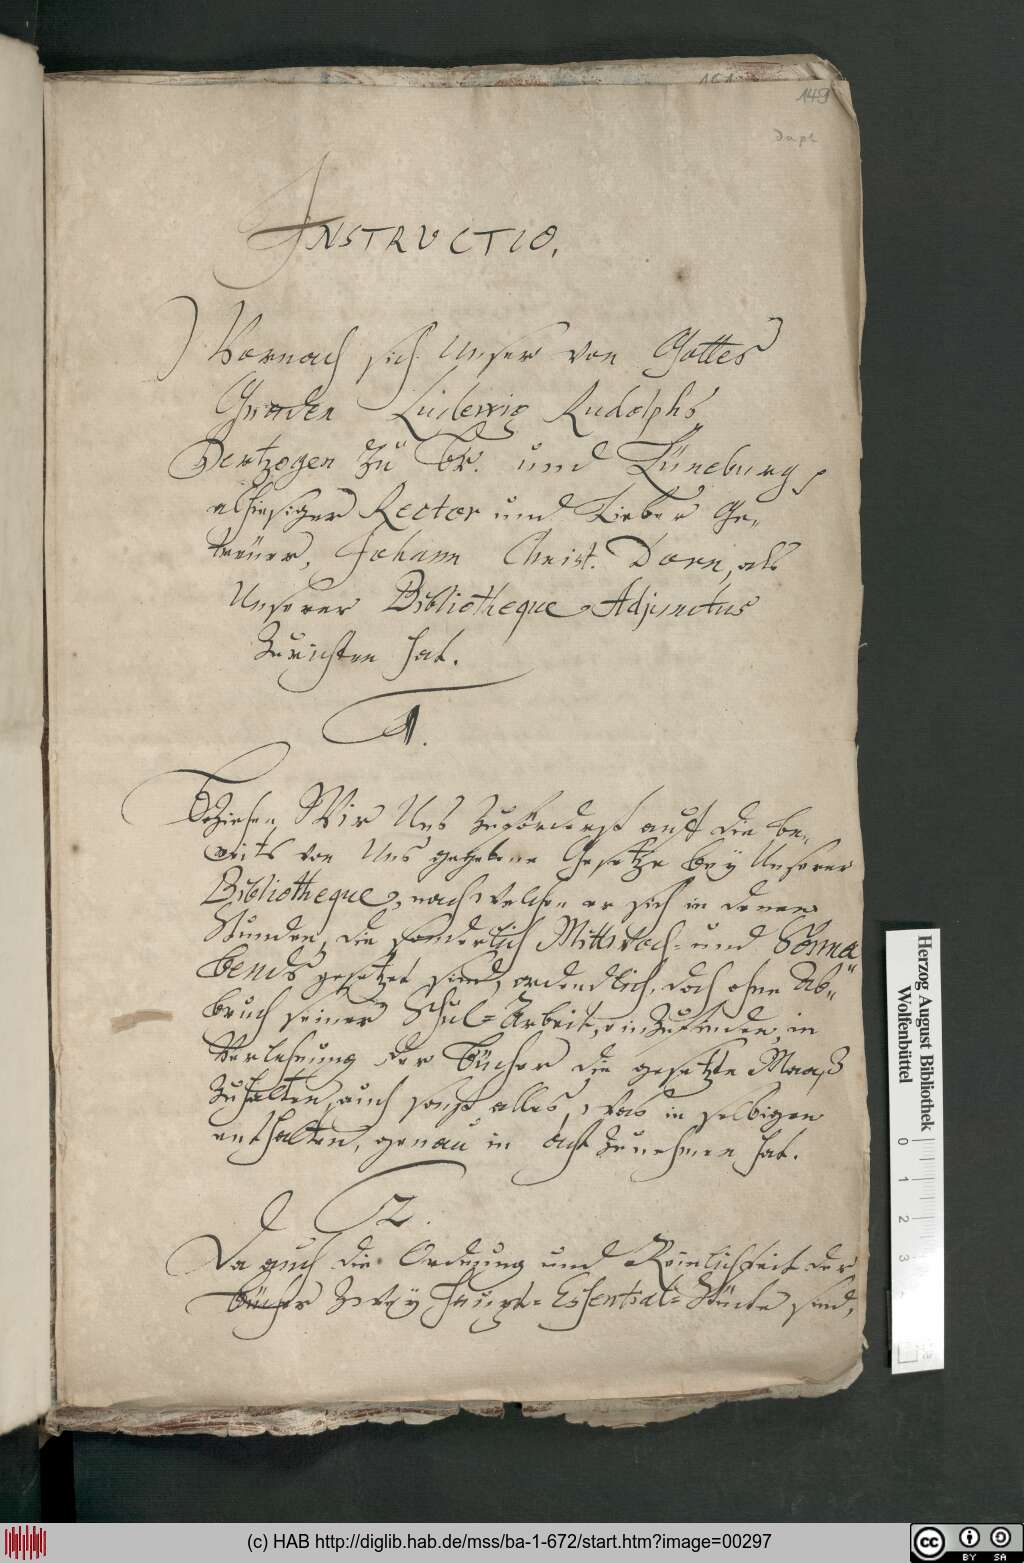 151
149
Dupl
INSTRUCTIO.
Wornach sich Unser von Gottes
Gnaden Ludewig Rudolphs
Hertzogen zu Br. und Lüneburg,
alhiesiger Rector und Lieber Ge-
treüer, Johann Christ. Dorn, als
Unserer Bibliotheque Adjunctus
zurichten hat.
1.
Beziehen Wir Uns zuförderst auff die be-
reits von Uns gegebene Gesetze bey Unserer
Bibliotheque, nach welchen er sich in denen
Stunden, die sonderlich Mittwoch- und Sonna-
bends gesetzet sind, ordendlich, doch ohne Ab-
bruch seiner Schul-Arbeit, einzufinden, in
Verlehnung der Bücher die gesetzte Maaß
zuhalten, auch sonst alles, was in selbigen
enthalten, genau in acht zunehmen hat.
2.
Da auch die Ordnung und Reinlichkeit der
Bücher zwey Haupt- Essential-Stücke sind,
Herzog August Bibliothek
Wolfenbüttel
0 1 2 3
(c) HAB http://diglib.hab.de/mss/ba-1-672/start.htm?image=00297
cc BY SA